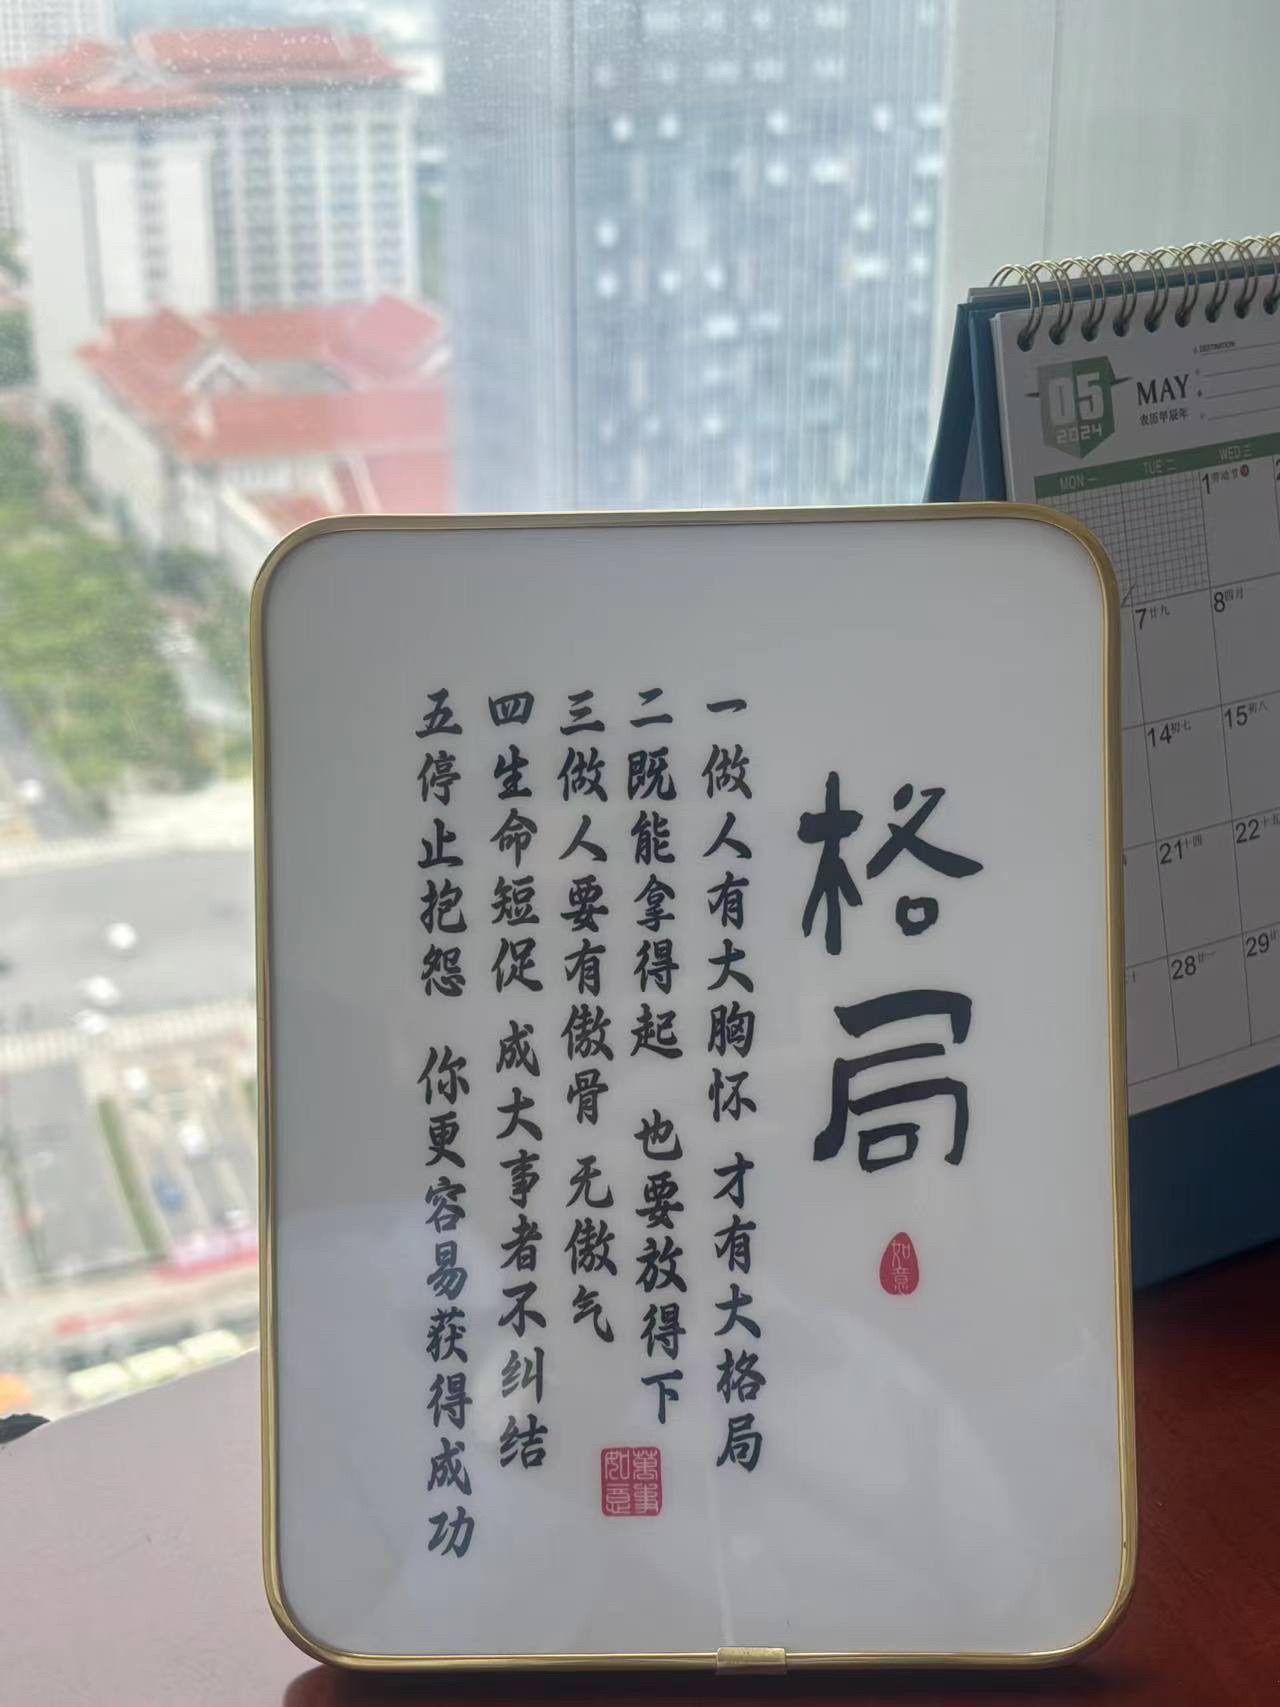 格局
如意
一做人有大胸怀 才有大格局
二既能拿得起 也要放得下
三做人要有傲骨 无傲气
四生命短促 成大事者不纠结
五停止抱怨 你更容易获得成功
萬事如意
05
2024
MAY
农历甲辰年
DESTINATION
MON 一 TUE 二 WED 三
1 劳动节
7 廿九 8 四月
14 初七 15 初八
21 十四 22 十五
28 廿一 29